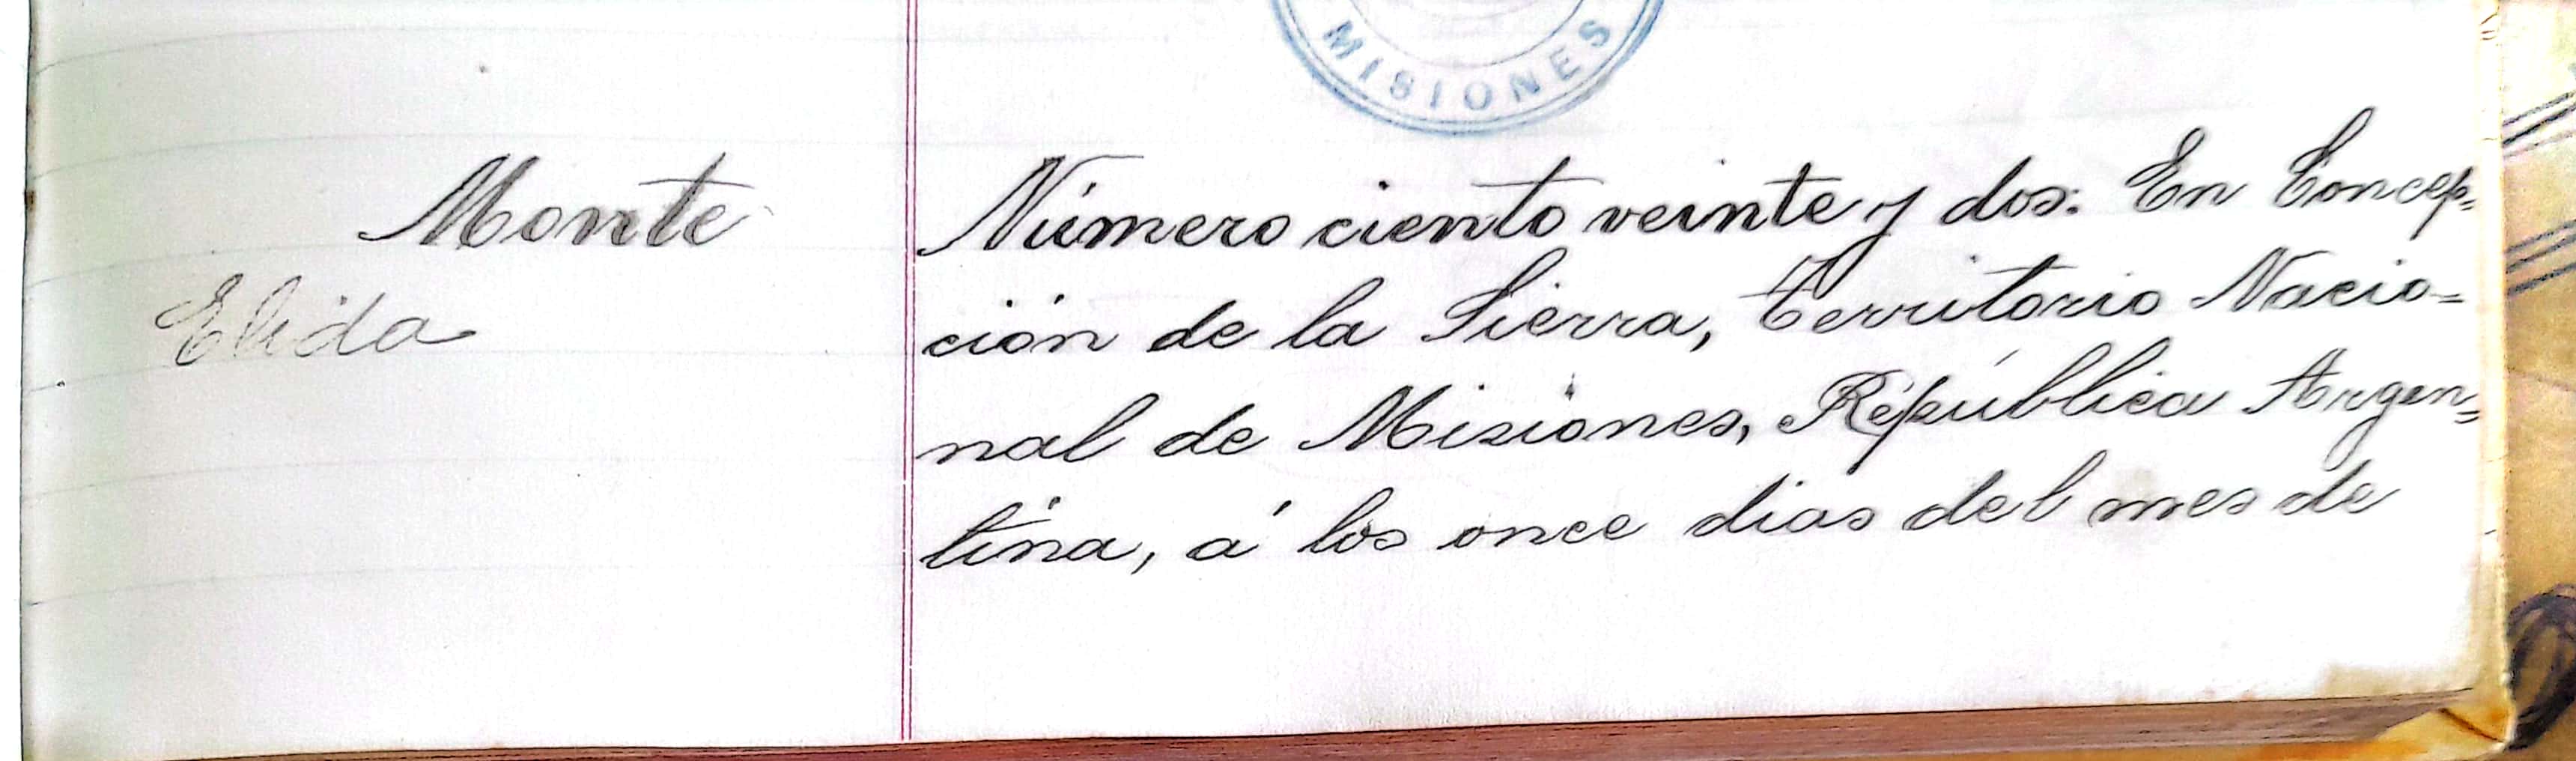 MISIONES
Monte
Elida
Número ciento veinte y dos. En Concep=
ción de la Sierra, Territorio Nacio=
nal de Misiones, República Argen=
tina, á los once dias del mes de